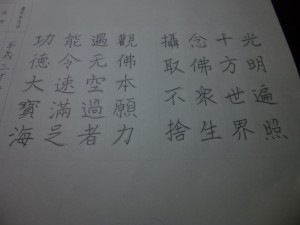 光明遍照
十方世界
念佛衆生
攝取不捨
觀佛本願力
遇无空過者
能令速滿足
功德大寶海
平成